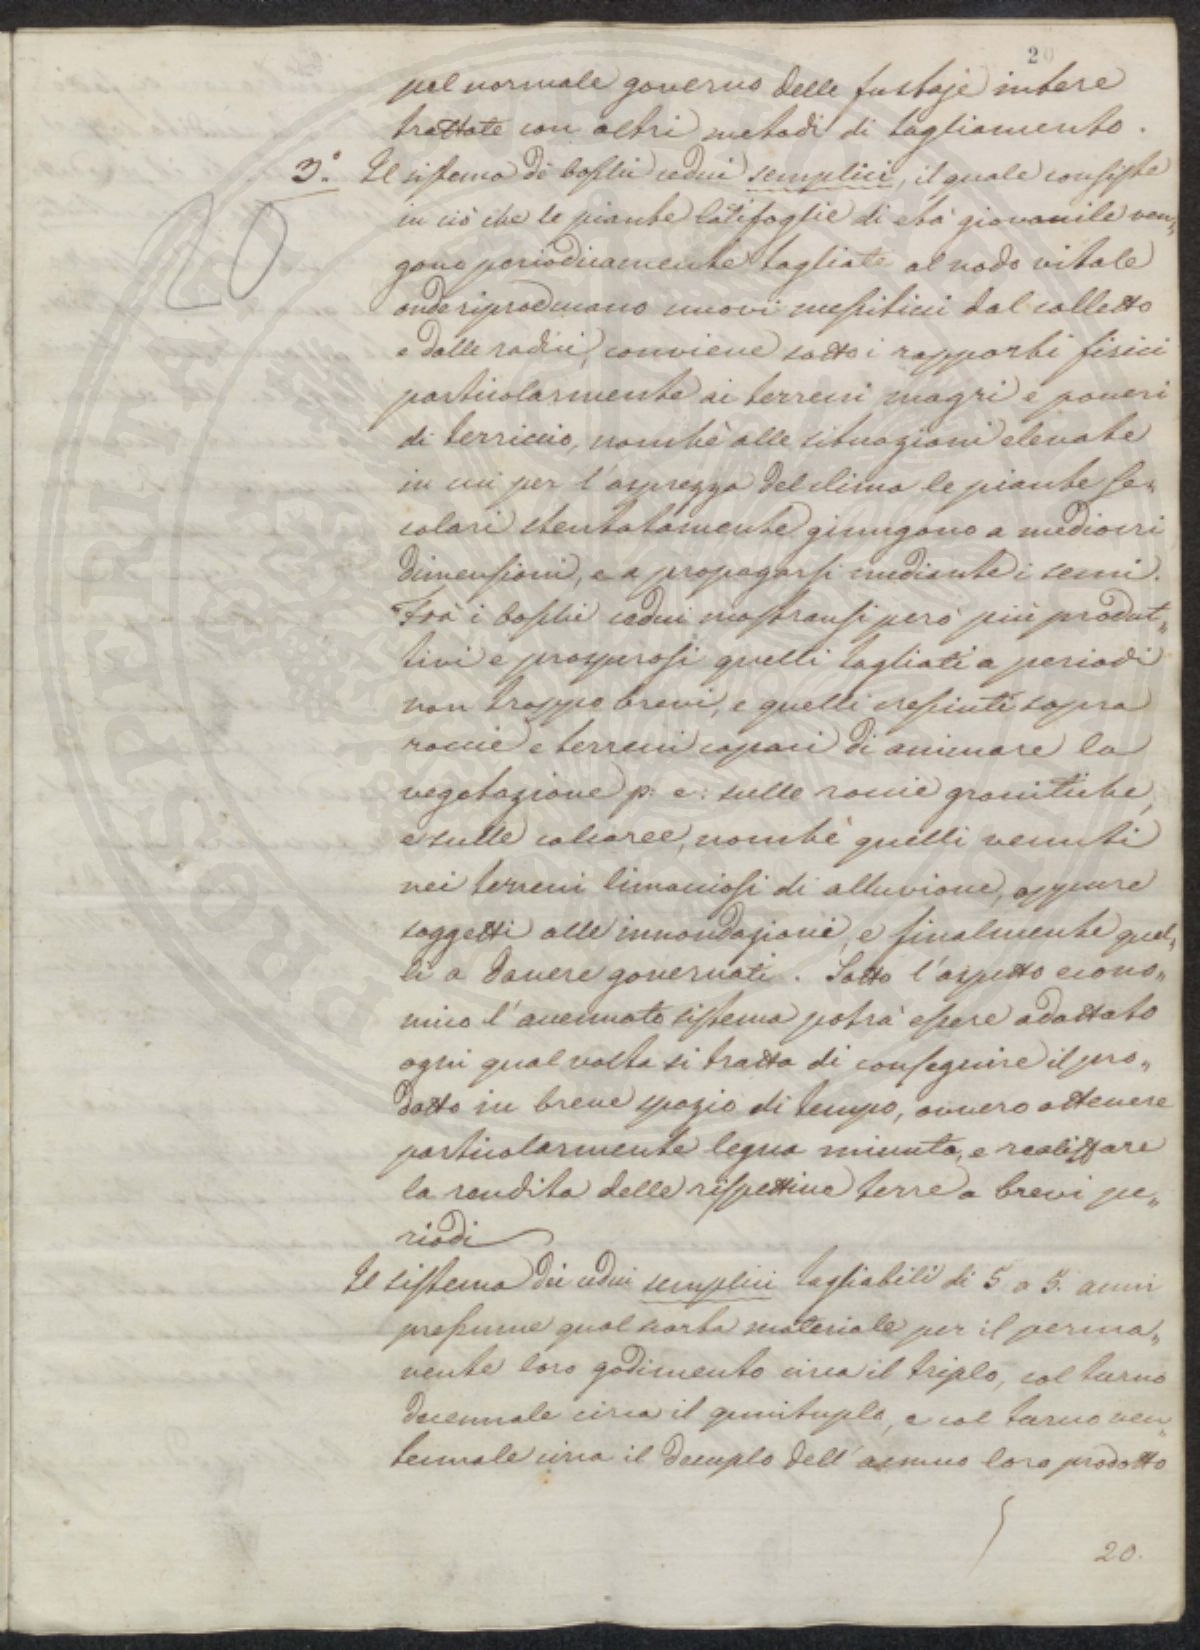 20
pel normale governo delle fustaje intere
trattate con altri metodi di tagliamento.
3.° Il sistema di boschi cedui semplici, il quale consiste
in ciò che le piante latifoglie di età giovanile ven„
gono periodicamente tagliate al nodo vitale
onde riproducano nuovi messiticci dal colletto
e dalle radici, conviene sotto i rapporti fisici
particolarmente ai terreni magri e poveri
di terriccio, nonchè alle situazioni elevate
in cui per l'asprezza del clima le piante se„
colari stentatamente giungono a mediocri
dimensioni, e a propagarsi mediante i semi.
Frà i boschi cedui mostransi però più produt„
tivi e prosperosi quelli tagliati a periodi
non troppo brevi, e quelli cresciuti sopra
roccie e terreni capaci di animare la
vegetazione p: e: sulle roccie granitiche,
e sulle calcaree, nonchè quelli venuti
nei terreni limacciosi di alluvione, oppure
soggetti alle innondazioni, e finalmente quel„
li a dovere governati. Sotto l'aspetto econo„
mico l'accennato sistema potrà essere adottato
ogni qual volta si tratta di conseguire il pro„
dotto in breve spazio di tempo, ovvero ottenere
particolarmente legna minuta, e realizzare
la rendita delle rispettive terre a brevi pe„
riodi
Il sistema dei cedui semplici tagliabili di 5 a 5. anni
presume qual scorta materiale per il perma„
nente loro godimento circa il triplo, col turno
decennale circa il quintuplo, e col turno ven„
tennale circa il decuplo dell'annuo loro prodotto
20.
20